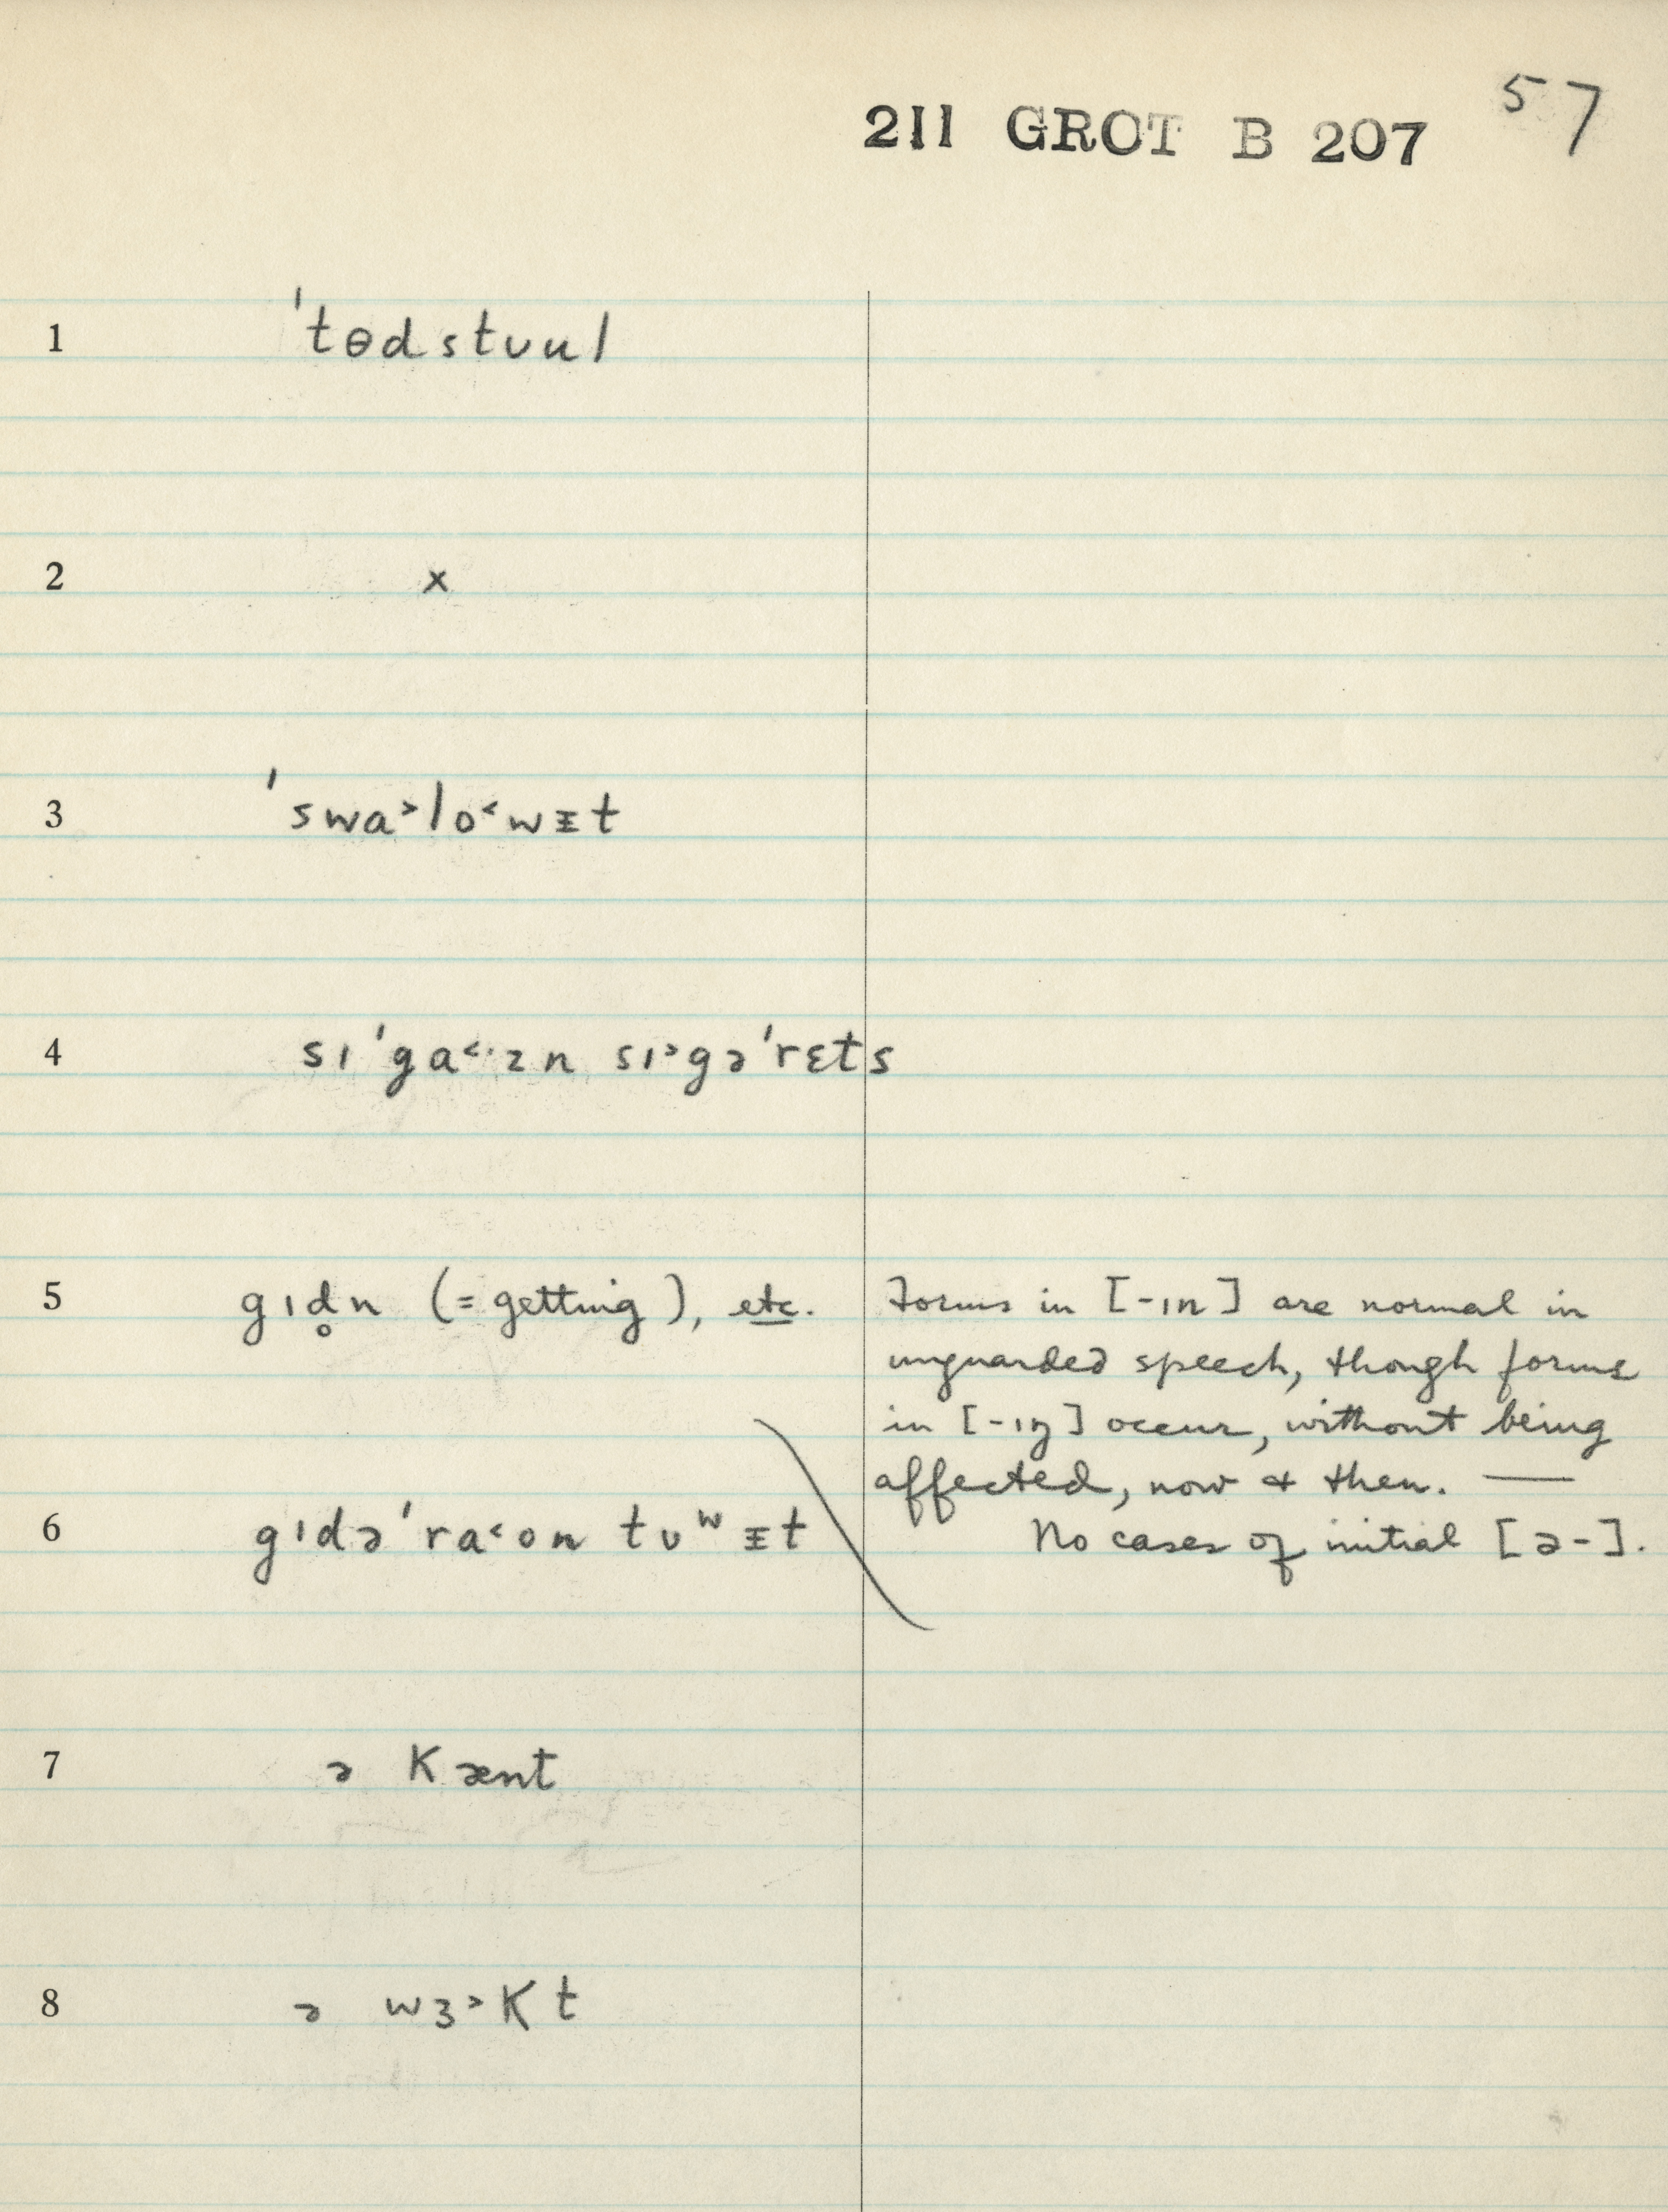 211 GROT B 207 57
1 ˈtɵdstʊul
2 x
3 ˈswa˃lo˂wᵻt
4 sɪˈga˂·zn sɪ˃gəˈrɛts
5 gɪd̥n (= getting), etc. Forms in [-ɪn] are normal in
unguarded speech, though forms
in [-ɪŋ] occur, without being
affected, now & then. —
6 gɪdəˈra˂ʊn tʊʷᵻt No cases of initial [ə-].
7 ə kænt
8 ə wɜ˃kt